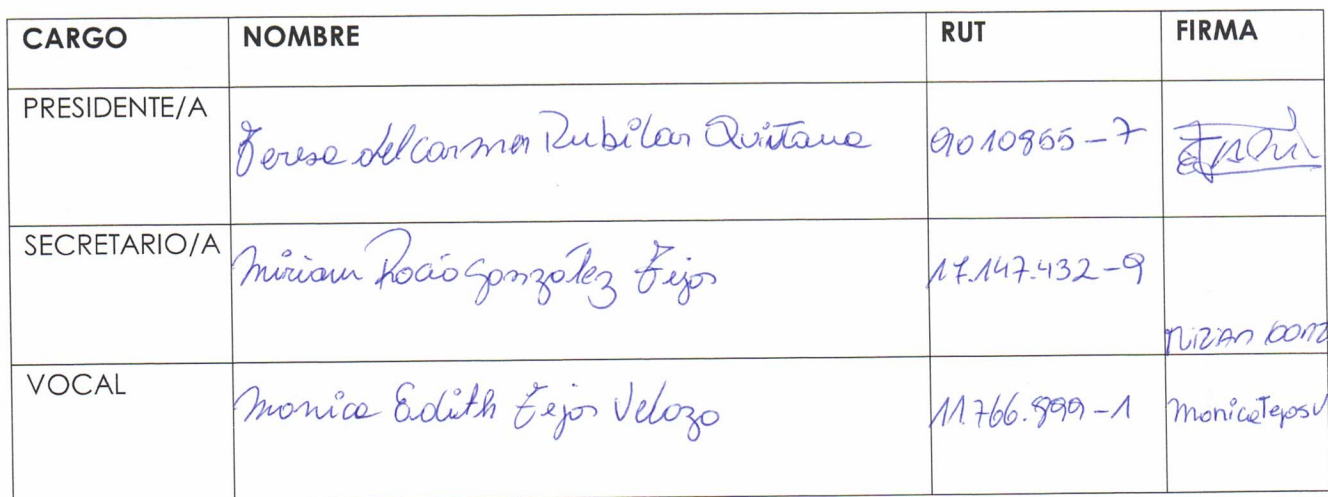 CARGO NOMBRE RUT FIRMA
PRESIDENTE/A Teresa del Carmen Rubilar Quintana 9010865-7
SECRETARIO/A Miriam Rocio González Tejos 17.147.432-9
VOCAL Monica Edith Tejos Velozo 11.766.899-1 Monica Tejos V